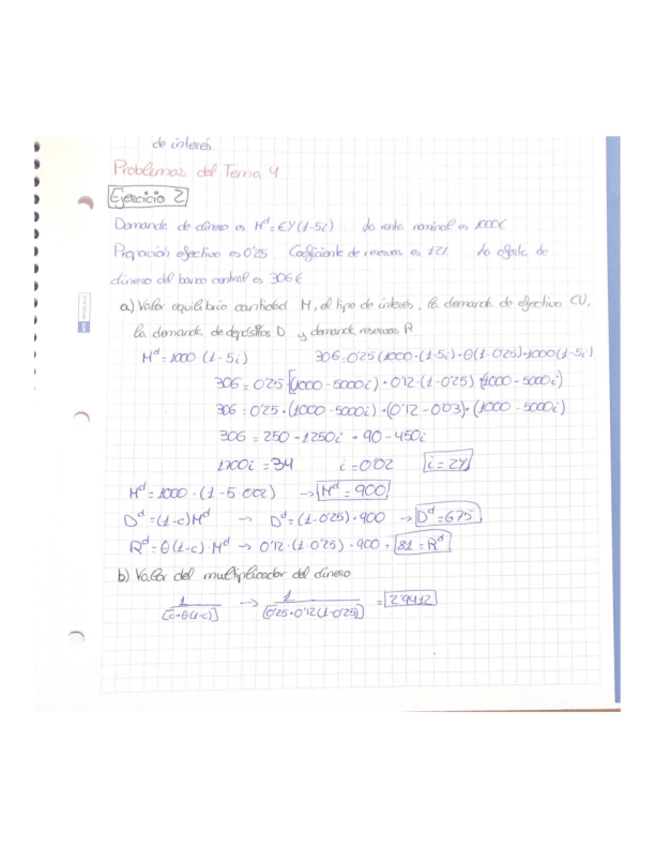 de interés.
Problemas del Tema 4
Ejercicio 2
Demanda de dinero es Mᵈ = €Y(1-5i). La renta nominal es 1000€
Proporción efectivo es 0'25. Coeficiente de reservas es 12%. La oferta de
dinero del banco central es 306€
a) Valor equilibrio cantidad M, el tipo de interés, la demanda de efectivo CU,
la demanda de depósitos D y demanda reservas R.
Mᵈ = 1000 · (1-5i) 306 = 0'25(1000 · (1-5i) + θ(1-0'25) · 1000(1-5i)
306 = 0'25 · [(1000 - 5000i) + 0'12 · (1-0'25) · (1000 - 5000i)
306 = 0'25 · (1000 - 5000i) + (0'12 - 0'03) · (1000 - 5000i)
306 = 250 - 1250i + 90 - 450i
1700i = 34 i = 0'02 i = 2%
Mᵈ = 1000 · (1 - 5 · 0'02) → Mᵈ = 900
Dᵈ = (1-c)Mᵈ → Dᵈ = (1-0'25) · 900 → Dᵈ = 675
Rᵈ = θ(1-c) · Mᵈ → 0'12 · (1-0'25) · 900 = 81 = Rᵈ
b) Valor del multiplicador del dinero
1/[c+θ(1-c)] → 1/[0'25+0'12(1-0'25)] = 2'9412